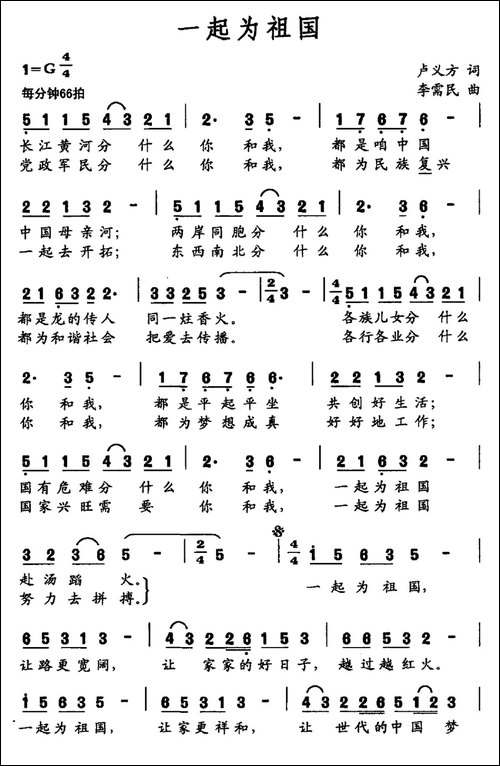 一起为祖国
1=G 4/4
卢义方 词
每分钟66拍
李需民 曲
5 1 1 5 4 3 2 1 | 2· 3 5 - | 1 7 6 7 6 - |
长江黄河分 什么 你 和我, 都是咱中国
党政军民分 什么 你 和我, 都为民族复兴
2 2 1 3 2 - | 5 1 1 5 4 3 2 1 | 2· 3 6 - |
中国母亲河; 两岸同胞分 什么 你 和我,
一起去开拓; 东西南北分 什么 你 和我,
2 1 6 3 2 2· | 3 3 2 5 3 - | 2/4 3 - | 4/4 5 1 1 5 4 3 2 1 |
都是龙的传人 同一炷香火。 各族儿女分 什么
都为和谐社会 把爱去传播。 各行各业分 什么
2· 3 5 - | 1 7 6 7 6 6· | 2 2 1 3 2 - |
你 和我, 都是平起平坐 共创好生活;
你 和我, 都为梦想成真 好好地工作;
5 1 1 5 4 3 2 1 | 2· 3 6 - | 2 1 6 3 2 - |
国有危难分 什么 你 和我, 一起为祖国
国家兴旺需 要 你 和我, 一起为祖国
3 2 3 6 5 - | 2/4 5 - | 4/4 1 5 6 3 5 - |
赴汤蹈 火。 一起为祖国,
努力去拼搏。
6 5 3 1 3 - | 4 3 2 2 6 1 5 3 | 6 6 5 3 5 - |
让路更宽阔, 让 家家的好日子, 越过越红火。
1 5 6 3 5 - | 6 5 3 1 3 - | 4 3 2 2 6 5 1 2 3 |
一起为祖国, 让家更祥和, 让 世代的中国 梦